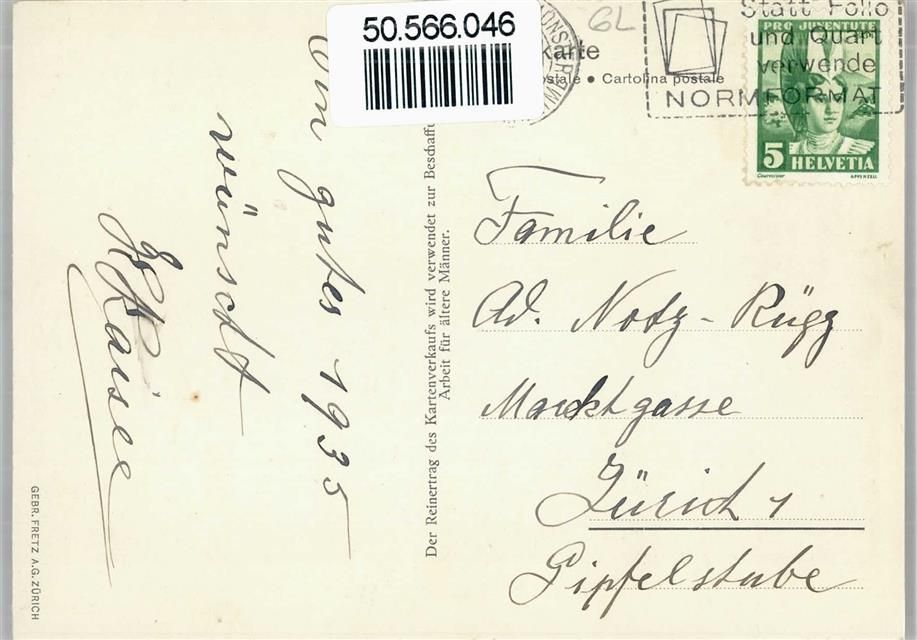 50.566.046
6L
Karte
postale • Cartolina postale
Statt Folio
und Quart
verwende
NORMFORMAT
PRO JUVENTUTE
5 HELVETIA
Courvoisier APPENZELL
gutes 1935
wünscht
Kaiser
Der Reinertrag des Kartenverkaufs wird verwendet zur Beschaffu
Arbeit für ältere Männer.
GEBR. FRETZ A.G. ZÜRICH
Familie
Ad. Notz-Rügg
Marktgasse
Zürich 1
Pipfelstube